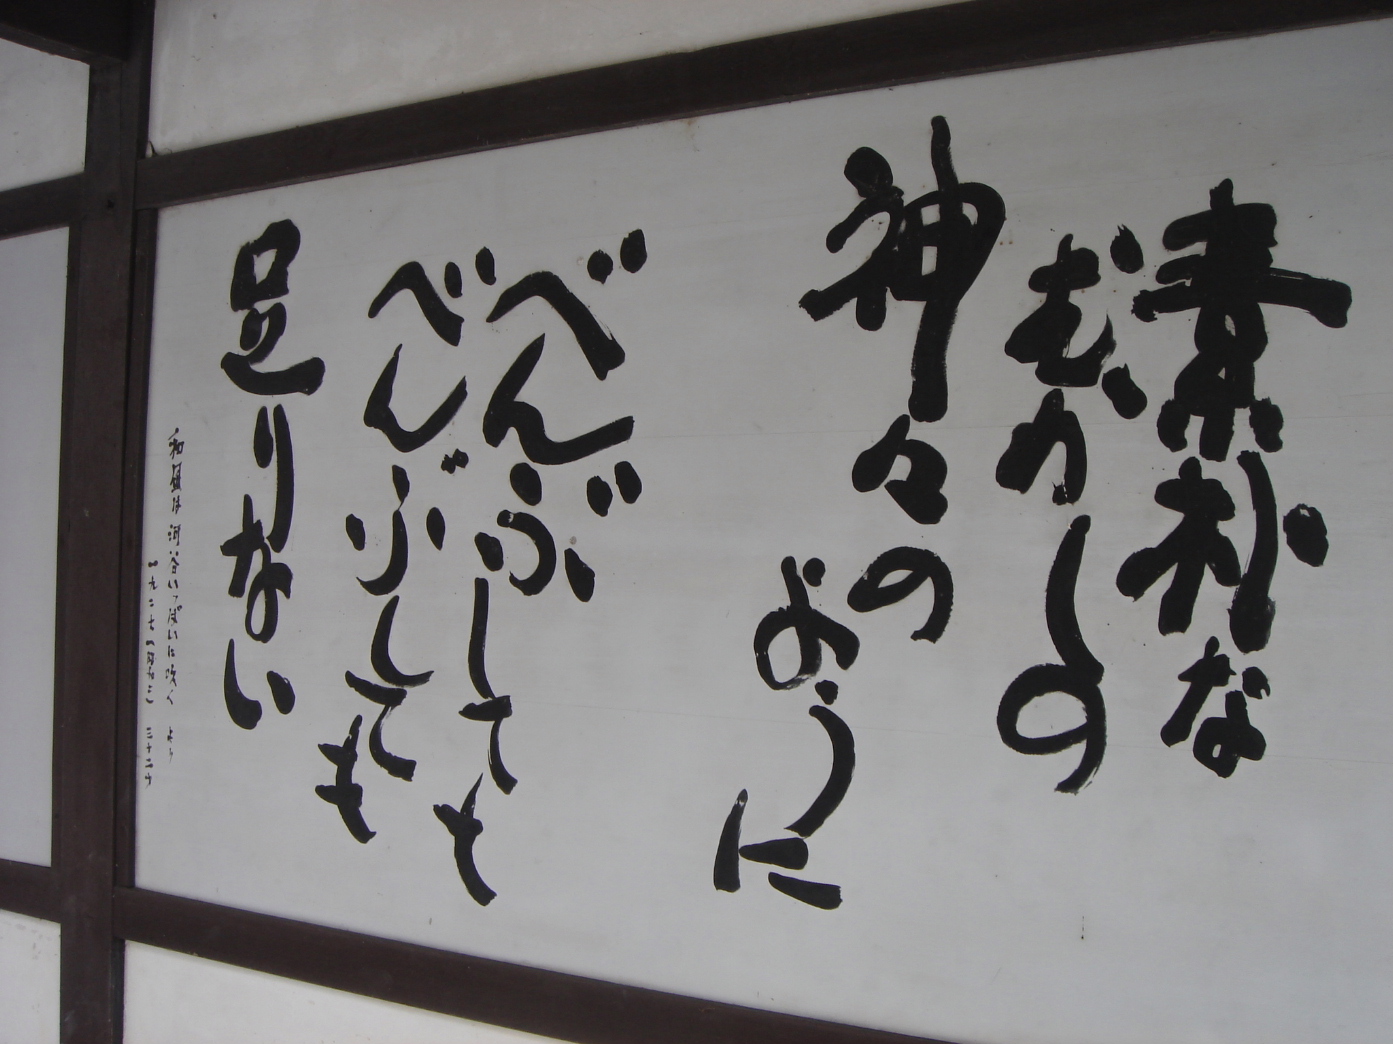 素朴な
むかしの
神々の
ように
べんぶしても
べんぶしても
足りない
和風は河谷いっぱいに吹く より
一九二七(昭和二)